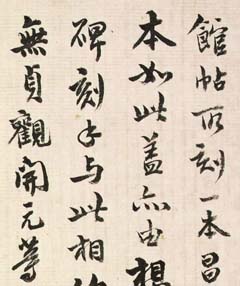 館帖所刻一本昌
本如此蓋亦由想
碑刻手与此相
無貞觀開元等